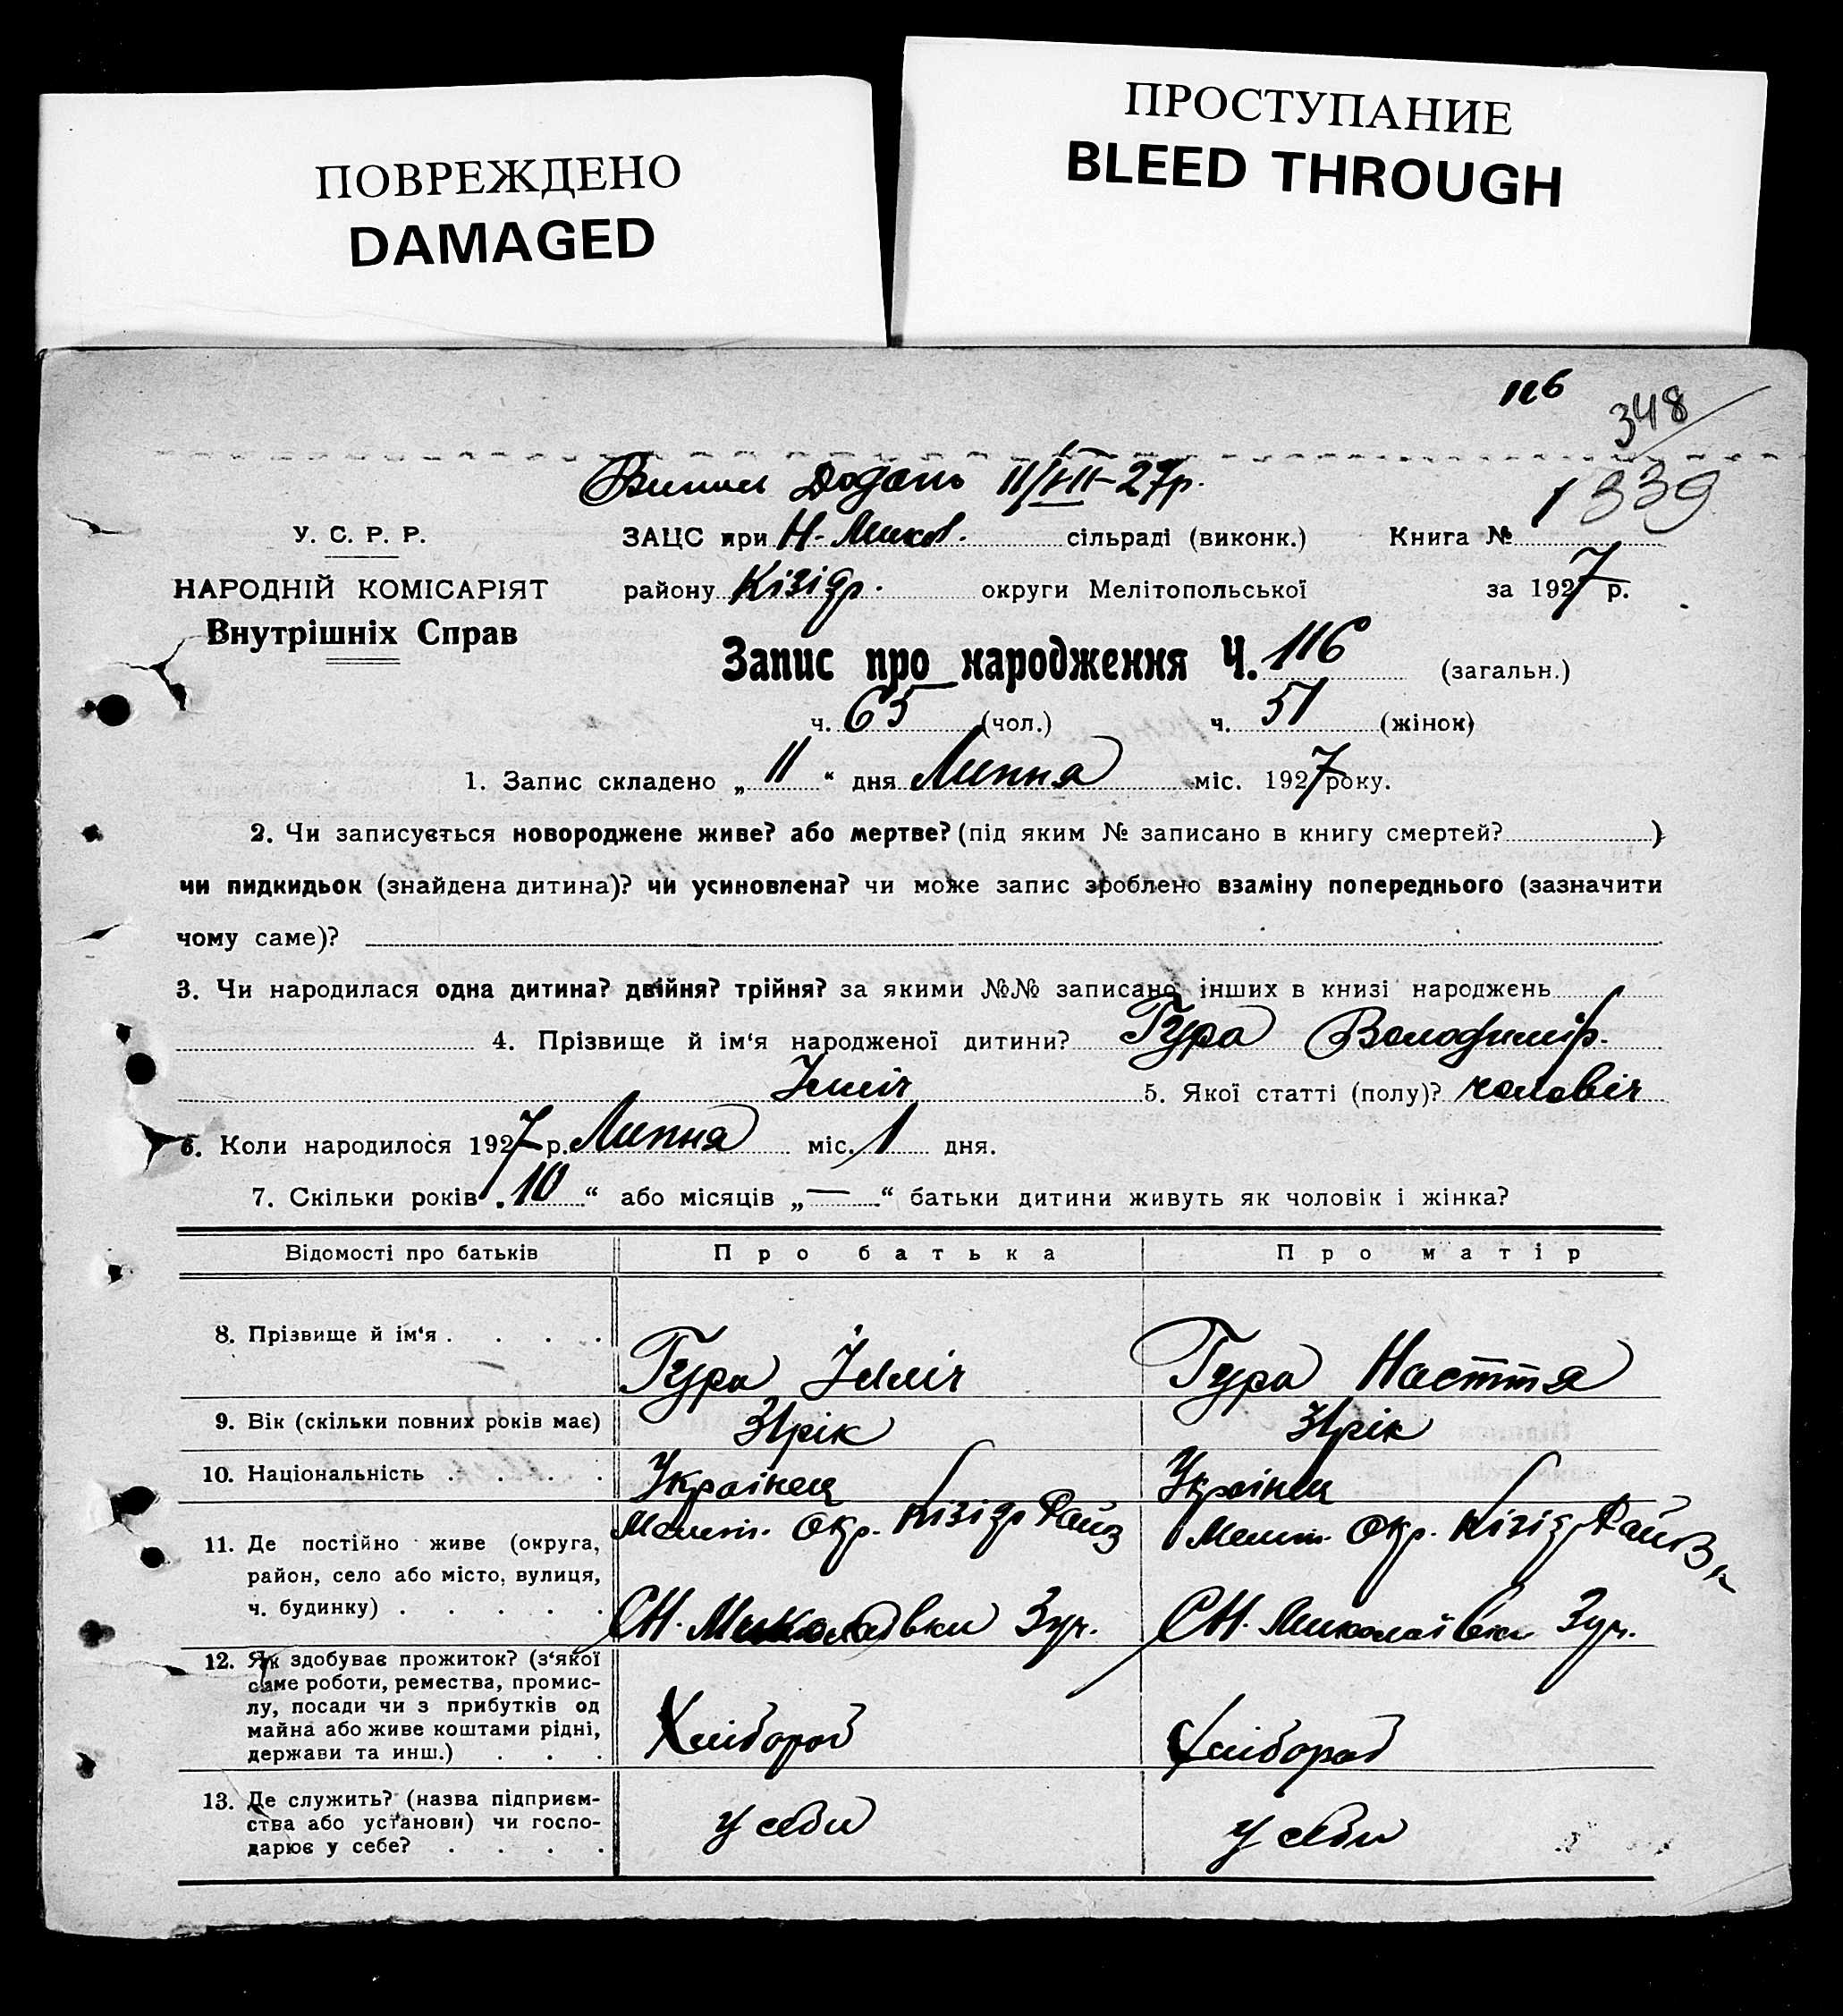 ПОВРЕЖДЕНО
DAMAGED
ПРОСТУПАНИЕ
BLEED THROUGH
116
348
339
Випис Додань 11/VII-27р.
У. С. Р. Р.
ЗАЦС при Н-Микол. сільраді (виконк.) Книга № 1
НАРОДНІЙ КОМІСАРІЯТ
району Кізідр. округи Мелітопольської за 1927 р.
Внутрішніх Справ
Запис про народження Ч. 116 (загальн.)
ч. 65 (чол.) ч. 51 (жінок)
1. Запис складено „ 11 “ дня Липня міс. 1927 року.
2. Чи записується новороджене живе? або мертве? (під яким № записано в книгу смертей? )
чи пидкидьок (знайдена дитина)? чи усиновлена? чи може запис зроблено взаміну попереднього (зазначити
чому саме)?
3. Чи народилася одна дитина? двійня? трійня? за якими №№ записано інших в книзі народжень
4. Прізвище й ім‘я народженої дитини? Гура Володимір.
5. Якої статті (полу)? чоловіч
6. Коли народилося 1927 р. Липня міс. 1 дня.
7. Скільки років „ 10 “ або місяців „ — “ батьки дитини живуть як чоловік і жінка?
Відомості про батьків Про батька Про матір
8. Прізвище й ім‘я . . . .
Гура Гура Настття
9. Вік (скільки повних років має)
31рік 31рік
10. Національність . . . .
Українец Українец
11. Де постійно живе (округа,
район, село або місто, вулиця,
ч. будинку) . . . . .
Меліт. Окр. Кізідр Меліт. Окр. Кізідр
СН. Миколаївки СН. Миколаївки
12. Як здобуває прожиток? (з‘якої
саме роботи, ремества, промис-
лу, посади чи з прибутків од
майна або живе коштами рідні,
держави та инш.) . . .
Хлібороб Хлібороб
13. Де служить? (назва підприєм-
ства або установи) чи госпо-
дарює у себе? . . . .
у себи у себи